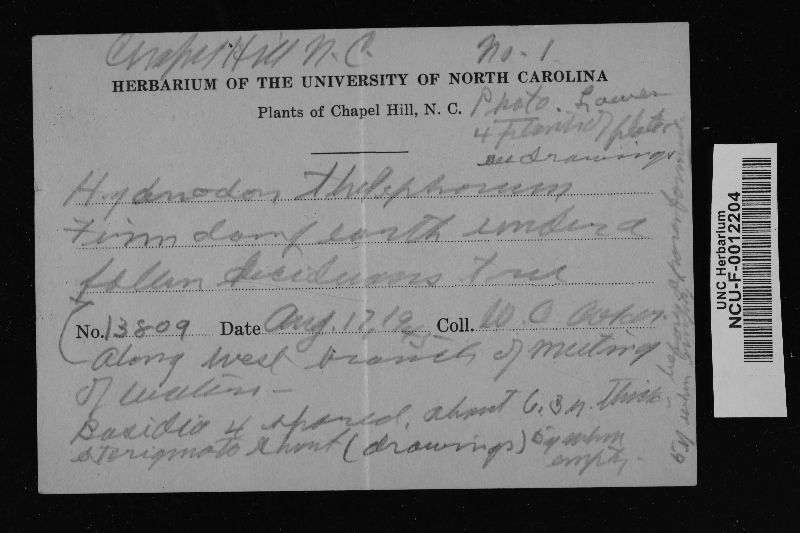 Chapel Hill N.C. No. 1
HERBARIUM OF THE UNIVERSITY OF NORTH CAROLINA
Plants of Chapel Hill, N. C.
Photo. Lower
4 plants of plate
see drawings
Hydnodon thelephorum
Firm damp earth under a
fallen deciduous tree
No. 13809 Date Aug. 17, 19 Coll. W C Coker.
Along west branch of Meeting
of Waters –
Basidia 4 spored, about 6.3 µ. thick
sterigmata short (drawings) 5µ when
empty.
when
UNC Herbarium
NCU-F-0012204